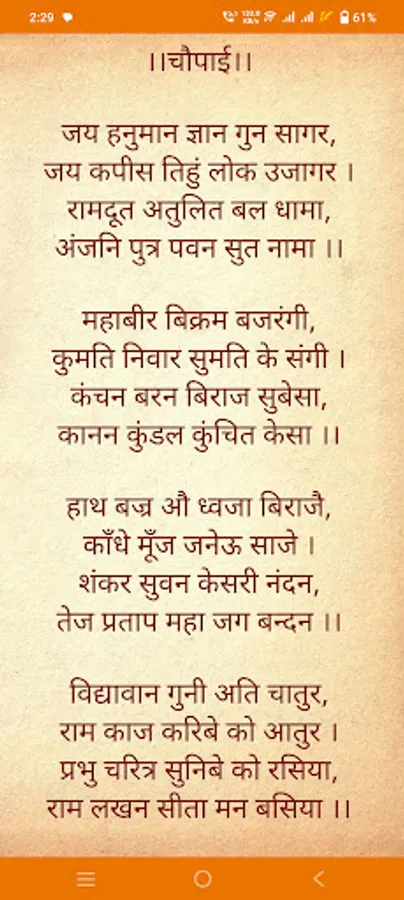 2:29 61%
।।चौपाई।।
जय हनुमान ज्ञान गुन सागर,
जय कपीस तिहुं लोक उजागर ।
रामदूत अतुलित बल धामा,
अंजनि पुत्र पवन सुत नामा ।।
महाबीर बिक्रम बजरंगी,
कुमति निवार सुमति के संगी ।
कंचन बरन बिराज सुबेसा,
कानन कुंडल कुंचित केसा ।।
हाथ बज्र औ ध्वजा बिराजै,
काँधे मूँज जनेऊ साजे ।
शंकर सुवन केसरी नंदन,
तेज प्रताप महा जग बन्दन ।।
विद्यावान गुनी अति चातुर,
राम काज करिबे को आतुर ।
प्रभु चरित्र सुनिबे को रसिया,
राम लखन सीता मन बसिया ।।